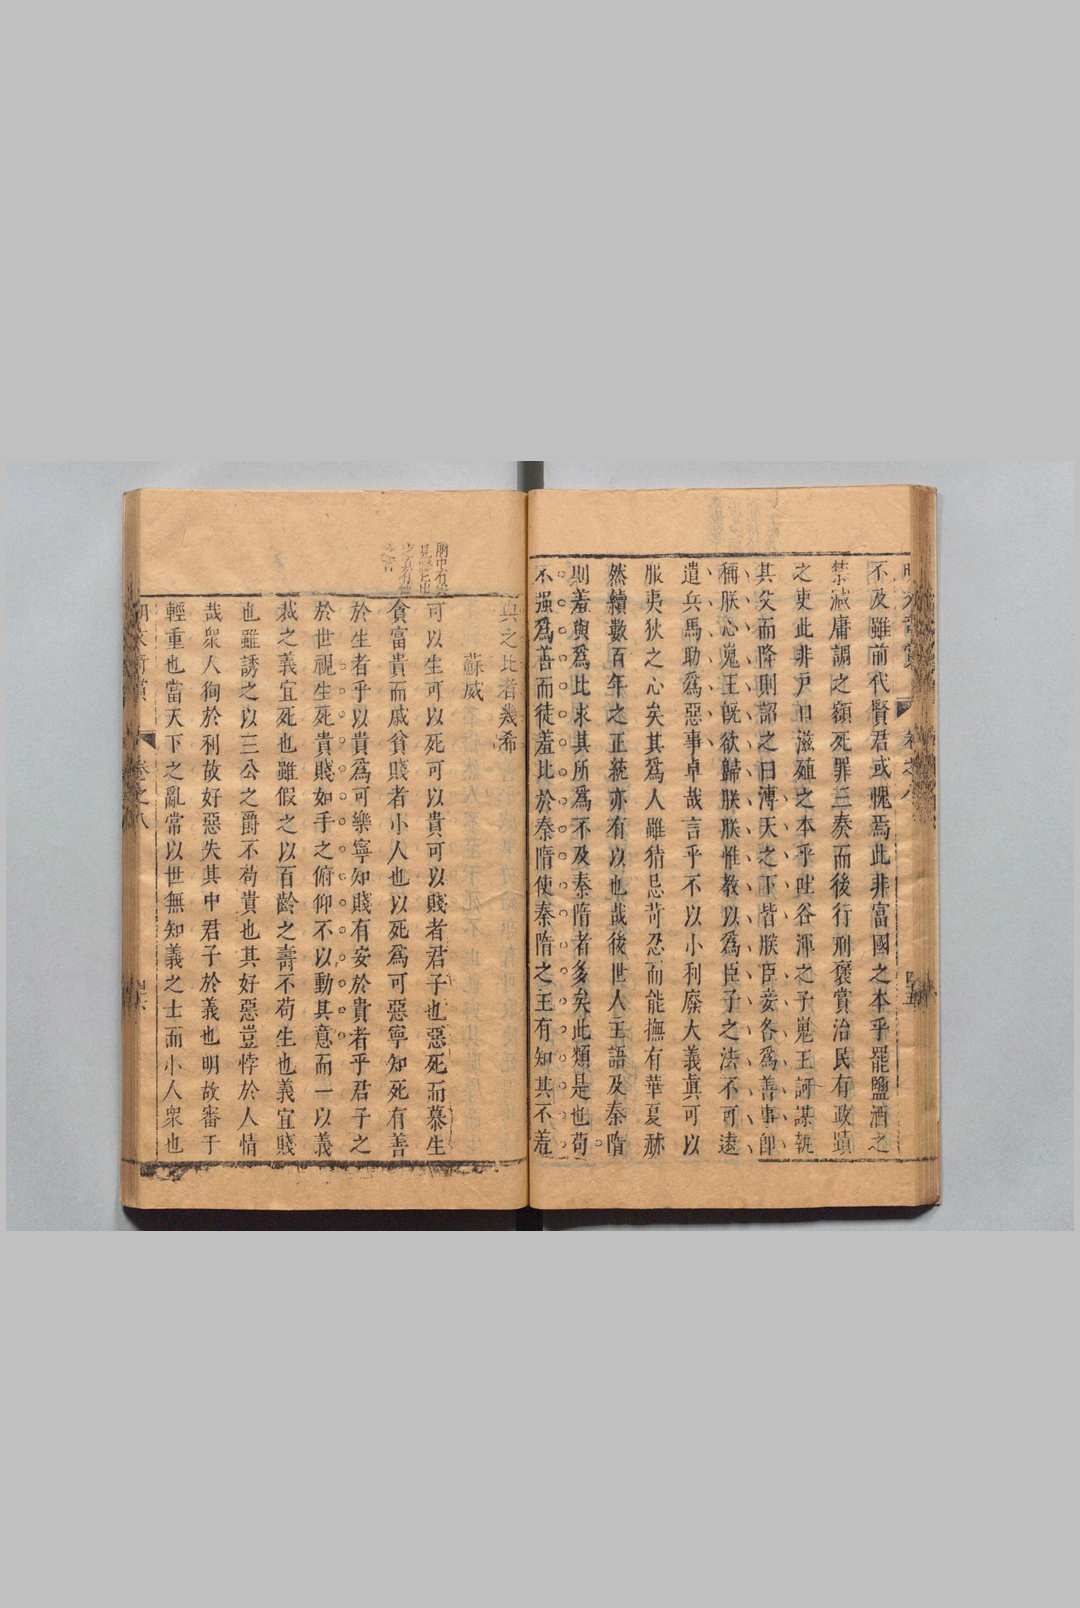 不及雖前代賢君或愧焉此非富國之本乎罷鹽酒之
禁減庸調之額死罪三奏而後行刑褒賞治民有政蹟
之吏此非戸口滋殖之本乎吐谷渾之子嵬王訶謀執
其父而降則詔之曰溥天之下皆朕臣妾各爲善事卽
稱朕心嵬王旣欲歸朕朕惟教以爲臣子之法不可遠
遣兵馬助爲惡事卓哉言乎不以小利廢大義眞可以
服夷狄之心矣其爲人雖猜忌苛忍而能撫有華夏赫
然續數百年之正統亦有以也哉後世人主語及秦隋
則羞與爲比求其所爲不及秦隋者多矣此類是也苟
不强爲善而徒羞比於秦隋使秦隋之主有知其不羞
與之比者幾希
蘇威
可以生可以死可以貴可以賤者君子也惡死而慕生
貪富貴而戚貧賤者小人也以死爲可惡寧知死有善
於生者乎以貴爲可樂寧知賤有安於貴者乎君子之
於世視生死貴賤如手之俯仰不以動其意而一以義
裁之義宜死也雖假之以百齡之壽不苟生也義宜賤
也雖誘之以三公之爵不苟貴也其好惡豈悖於人情
哉衆人徇於利故好惡失其中君子於義也明故審于
輕重也當天下之亂常以世無知義之士而小人衆也
卷之八